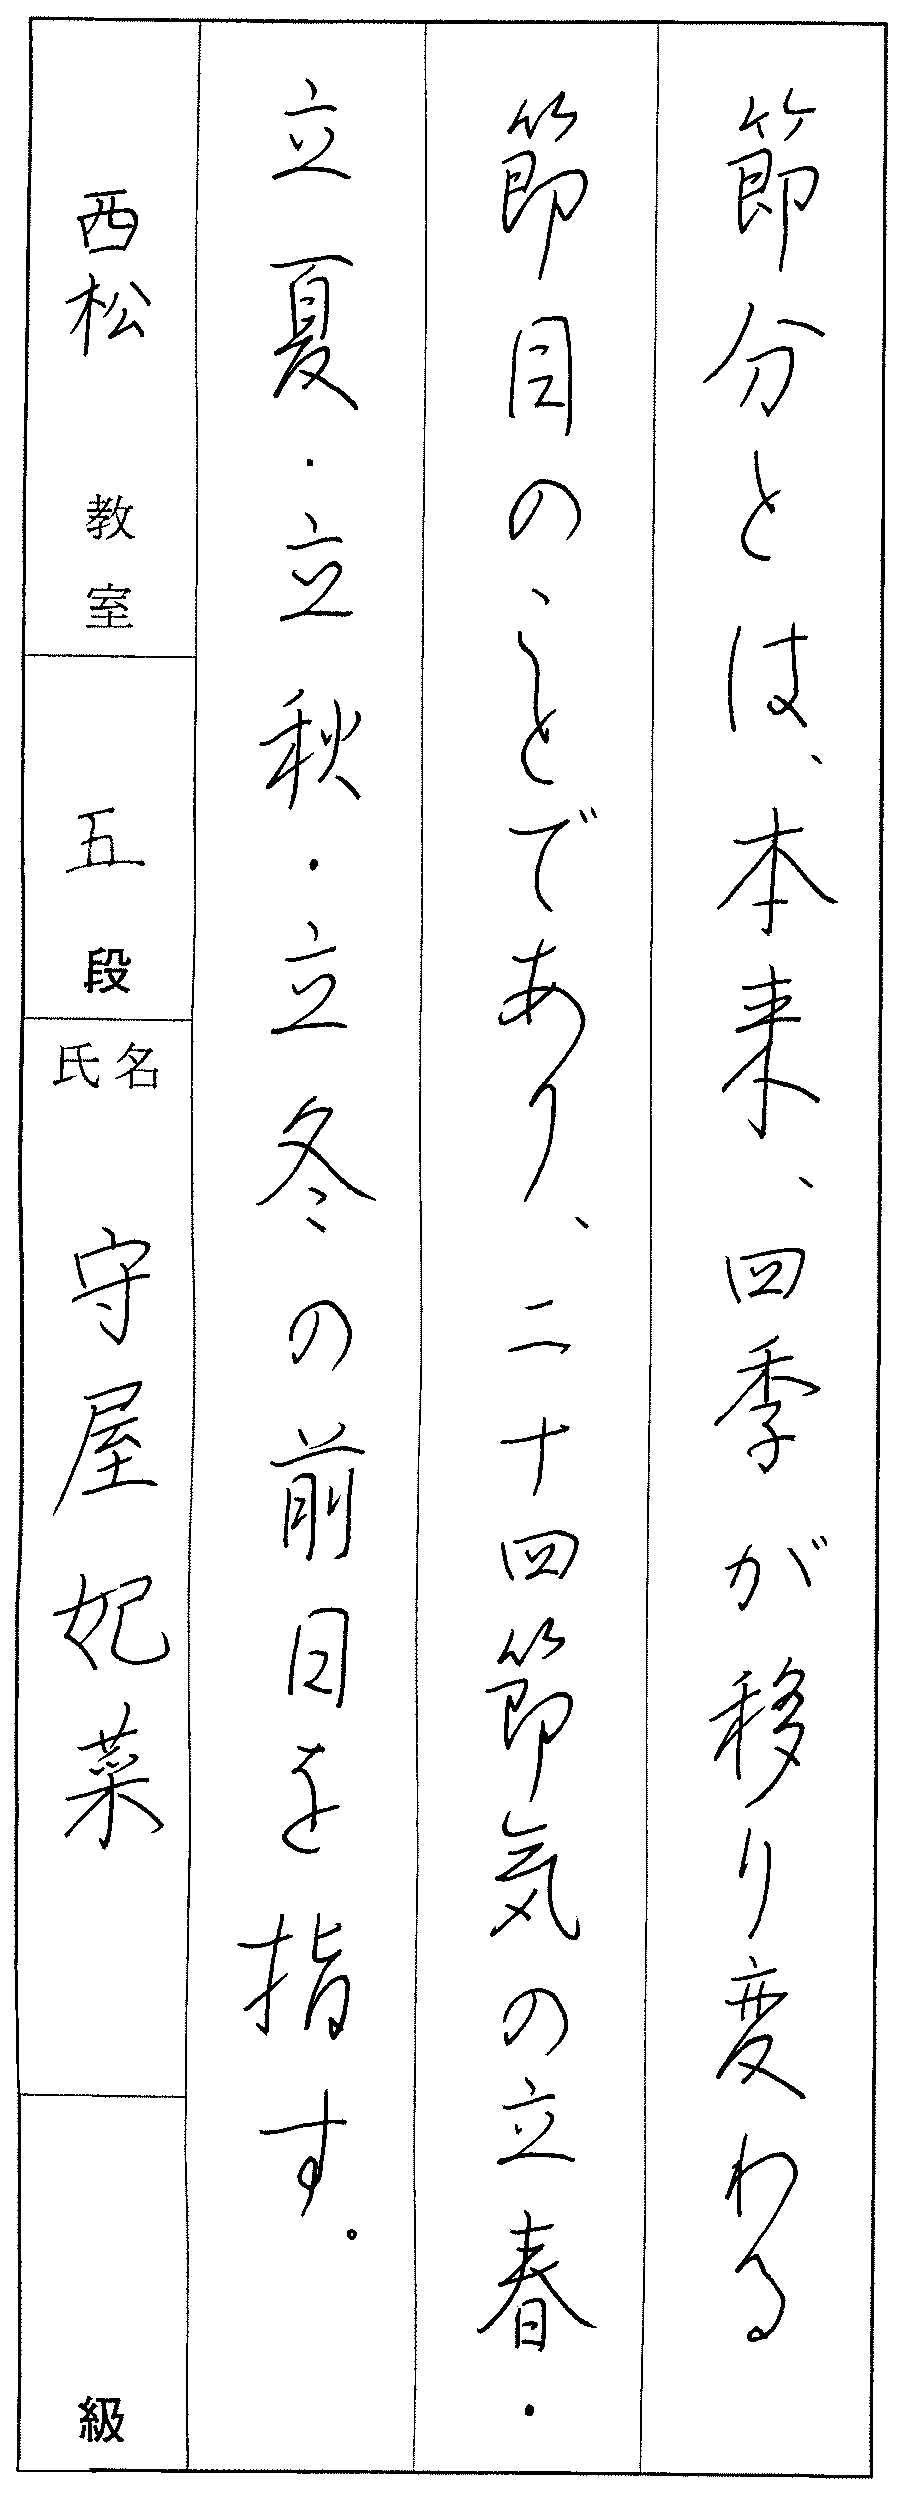 節分とは、本来、四季が移り変わる
節目のことであり、二十四節気の立春・
立夏・立秋・立冬の前日を指す。
西松 教室
五段
氏名 守屋妃菜
級